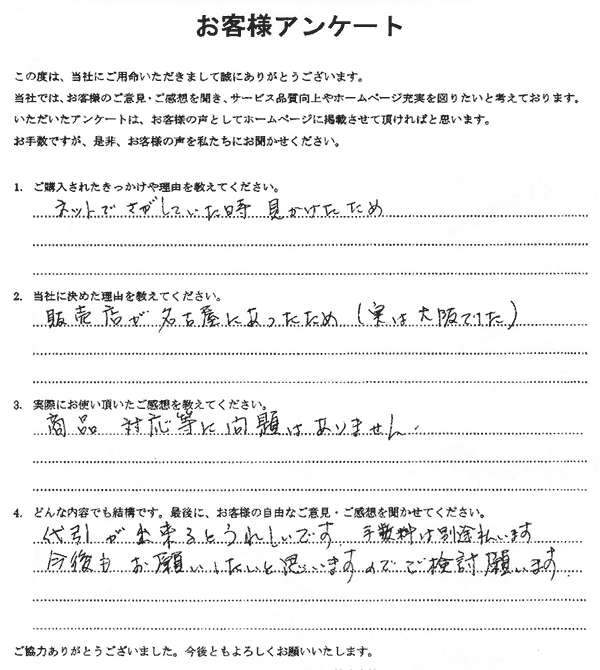 お客様アンケート
この度は、当社にご用命いただきまして誠にありがとうございます。
当社では、お客様のご意見・ご感想を聞き、サービス品質向上やホームページ充実を図りたいと考えております。
いただいたアンケートは、お客様の声としてホームページに掲載させて頂ければと思います。
お手数ですが、是非、お客様の声を私たちにお聞かせください。
1. ご購入されたきっかけや理由を教えてください。
ネットでさがしていた時 見かけたため
2. 当社に決めた理由を教えてください。
販売店が名古屋にあったため(実は大阪でした)
3. 実際にお使い頂いたご感想を教えてください。
商品 対応等に問題はありません.
4. どんな内容でも結構です。最後に、お客様の自由なご意見・ご感想を聞かせてください。
代引が出来るとうれしいです 手数料は別途払います
今後も お願いしたいと思いますのでご検討願います.
ご協力ありがとうございました。今後ともよろしくお願いいたします。